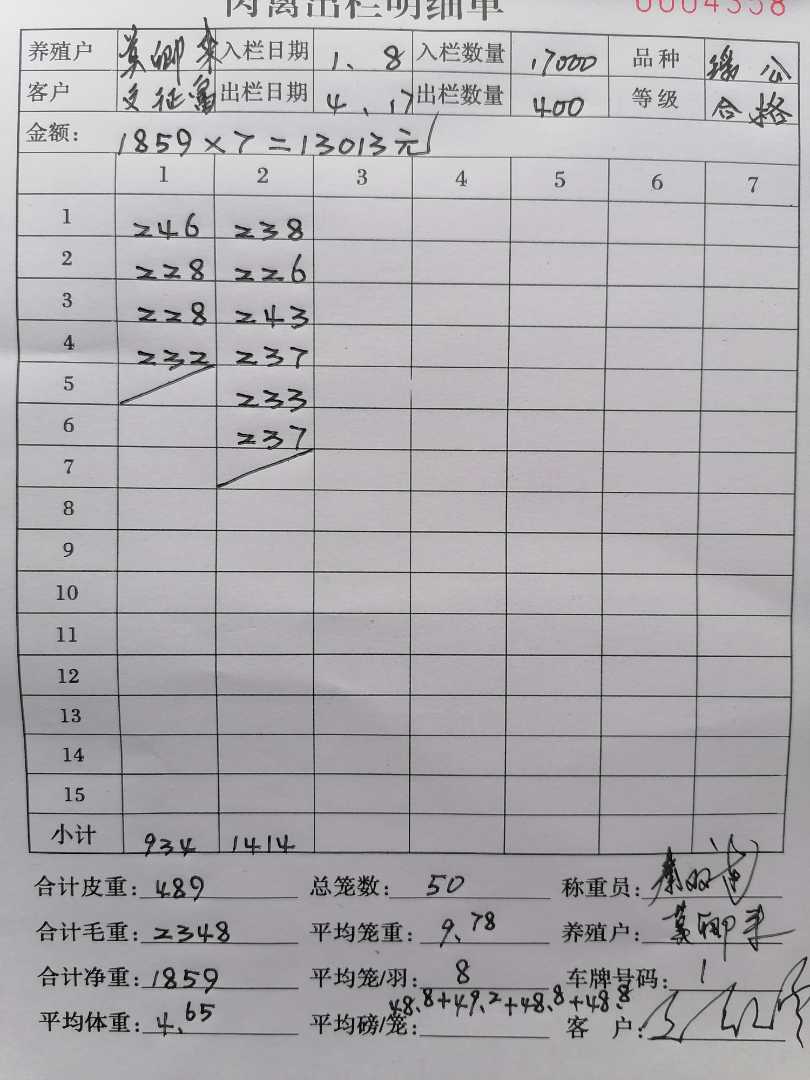 肉禽出栏明细单 0004358
养殖户 莫卿来 入栏日期 1.8 入栏数量 17000 品种
客户 出栏日期 4.17 出栏数量 400 等级 合格
金额: 1859×7=13013元
1 2 3 4 5 6 7
1 246 238
2 228 226
3 228 243
4 232 237
5 233
6 237
7
8
9
10
11
12
13
14
15
小计 934 1414
合计皮重: 489 总笼数: 50 称重员:
合计毛重: 2348 平均笼重: 9.78 养殖户: 莫卿来
合计净重: 1859 平均笼/羽: 8 车牌号码: 1
平均体重: 4.65 平均磅/笼: 48.8+49.2+48.8+48.8 客 户: